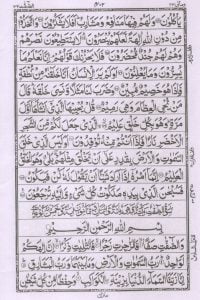 يَاْكُلُوْنَ وَلَهُمْ فِيْهَا مَنَافِعُ وَمَشَارِبُ اَفَلَا يَشْكُرُوْنَ وَاتَّخَذُوْا
مِنْ دُوْنِ اللّٰهِ اٰلِهَةً لَّعَلَّهُمْ يُنْصَرُوْنَ لَا يَسْتَطِيْعُوْنَ نَصْرَهُمْ
وَهُمْ لَهُمْ جُنْدٌ مُّحْضَرُوْنَ فَلَا يَحْزُنْكَ قَوْلُهُمْ اِنَّا نَعْلَمُ مَا
يُسِرُّوْنَ وَمَا يُعْلِنُوْنَ اَوَلَمْ يَرَ الْاِنْسَانُ اَنَّا خَلَقْنٰهُ مِنْ نُّطْفَةٍ
فَاِذَا هُوَ خَصِيْمٌ مُّبِيْنٌ وَضَرَبَ لَنَا مَثَلًا وَّنَسِيَ خَلْقَهٗ قَالَ
مَنْ يُّحْيِ الْعِظَامَ وَهِيَ رَمِيْمٌ قُلْ يُحْيِيْهَا الَّذِيْٓ اَنْشَاَهَآ اَوَّلَ
مَرَّةٍ وَهُوَ بِكُلِّ خَلْقٍ عَلِيْمٌ الَّذِيْ جَعَلَ لَكُمْ مِّنَ الشَّجَرِ
الْاَخْضَرِ نَارًا فَاِذَآ اَنْتُمْ مِّنْهُ تُوْقِدُوْنَ اَوَلَيْسَ الَّذِيْ خَلَقَ
السَّمٰوٰتِ وَالْاَرْضَ بِقٰدِرٍ عَلٰٓى اَنْ يَّخْلُقَ مِثْلَهُمْ بَلٰى وَهُوَ الْخَلّٰقُ
الْعَلِيْمُ اِنَّمَآ اَمْرُهٗٓ اِذَآ اَرَادَ شَيْئًا اَنْ يَّقُوْلَ لَهٗ كُنْ فَيَكُوْنُ
فَسُبْحٰنَ الَّذِيْ بِيَدِهٖ مَلَكُوْتُ كُلِّ شَيْءٍ وَّاِلَيْهِ تُرْجَعُوْنَ
بِسْمِ اللّٰهِ الرَّحْمٰنِ الرَّحِيْمِ
وَالصّٰٓفّٰتِ صَفًّا فَالزّٰجِرٰتِ زَجْرًا فَالتّٰلِيٰتِ ذِكْرًا اِنَّ اِلٰهَكُمْ
لَوَاحِدٌ رَبُّ السَّمٰوٰتِ وَالْاَرْضِ وَمَا بَيْنَهُمَا وَرَبُّ الْمَشَارِقِ
اِنَّا زَيَّنَّا السَّمَآءَ الدُّنْيَا بِزِيْنَةِ الْكَوَاكِبِ وَحِفْظًا مِّنْ كُلِّ شَيْطٰنٍ